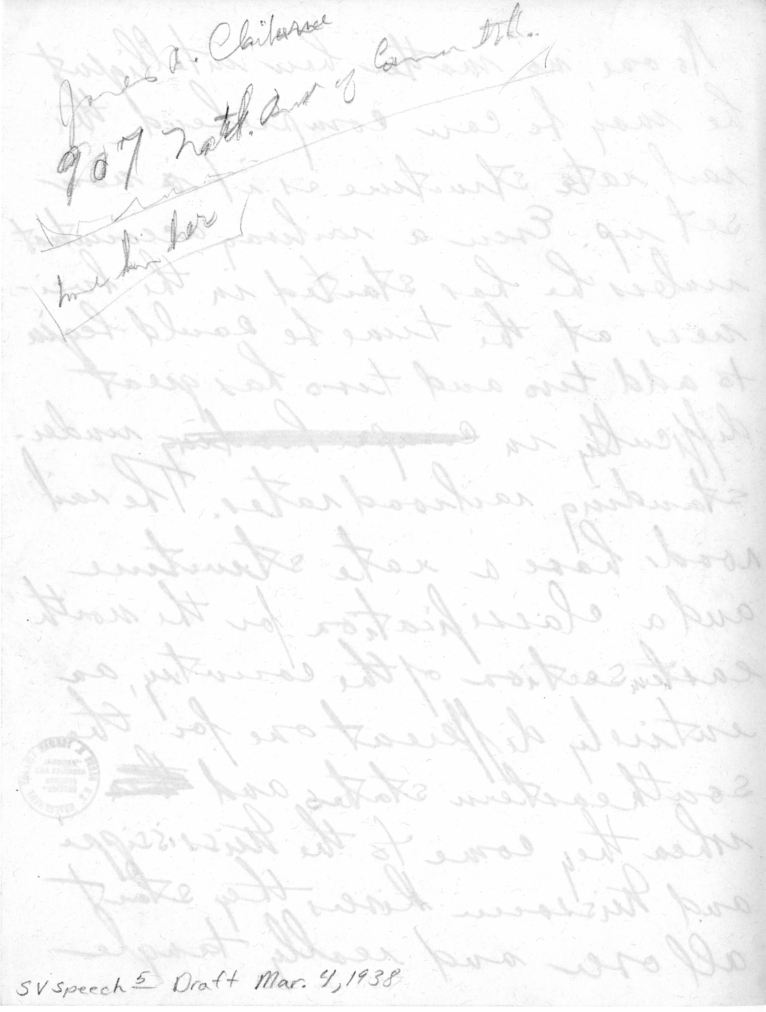 Claiborne
907 of
him her
No one, no matter how intelligent
he may be can comprehend the
rail rate structure as it is now
set up. Even a railway accountant
unless he has started in the busi-
ness at the time he could begin
to add two and two has great
difficulty in under-
standing railroad rates. The rail
roads have a rate structure
and a classification for the north
eastern section of the country, an
entirely different one for the
southeastern states and
when they come to the Mississippi
and Missouri Rivers they start
all over and really tangle
SV Speech 5 Draft Mar. 4, 1938